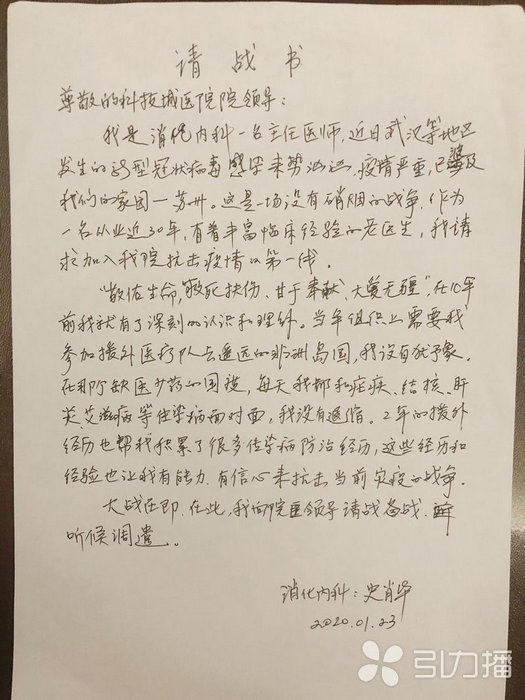 请战书
尊敬的科技城医院院领导：
我是消化内科一名主任医师，近日武汉等地区
发生的新型冠状病毒感染来势汹汹，疫情严重，已波及
我们的家园—苏州。这是一场没有硝烟的战争，作为
一名从业近30年，有着丰富临床经验的老医生，我请
求加入我院抗击疫情的第一线。
“敬佑生命，救死扶伤、甘于奉献、大爱无疆”，在10年
前我就有了深刻的认识和理解。当年组织上需要我
参加援外医疗队去遥远的非洲岛国，我没有犹予。
在那个缺医少药的国境，每天我都和疟疾、结核、肝
炎艾滋病等传染病面对面，我没有退缩。2年的援外
经历也帮我积累了很多传染病防治经历，这些经历和
经验也让我有能力、有信心来抗击当前灾疫的战争。
大战在即，在此，我向院医领导请战备战，
听候调遣。
消化内科：史肖华
2020.01.23
引力播